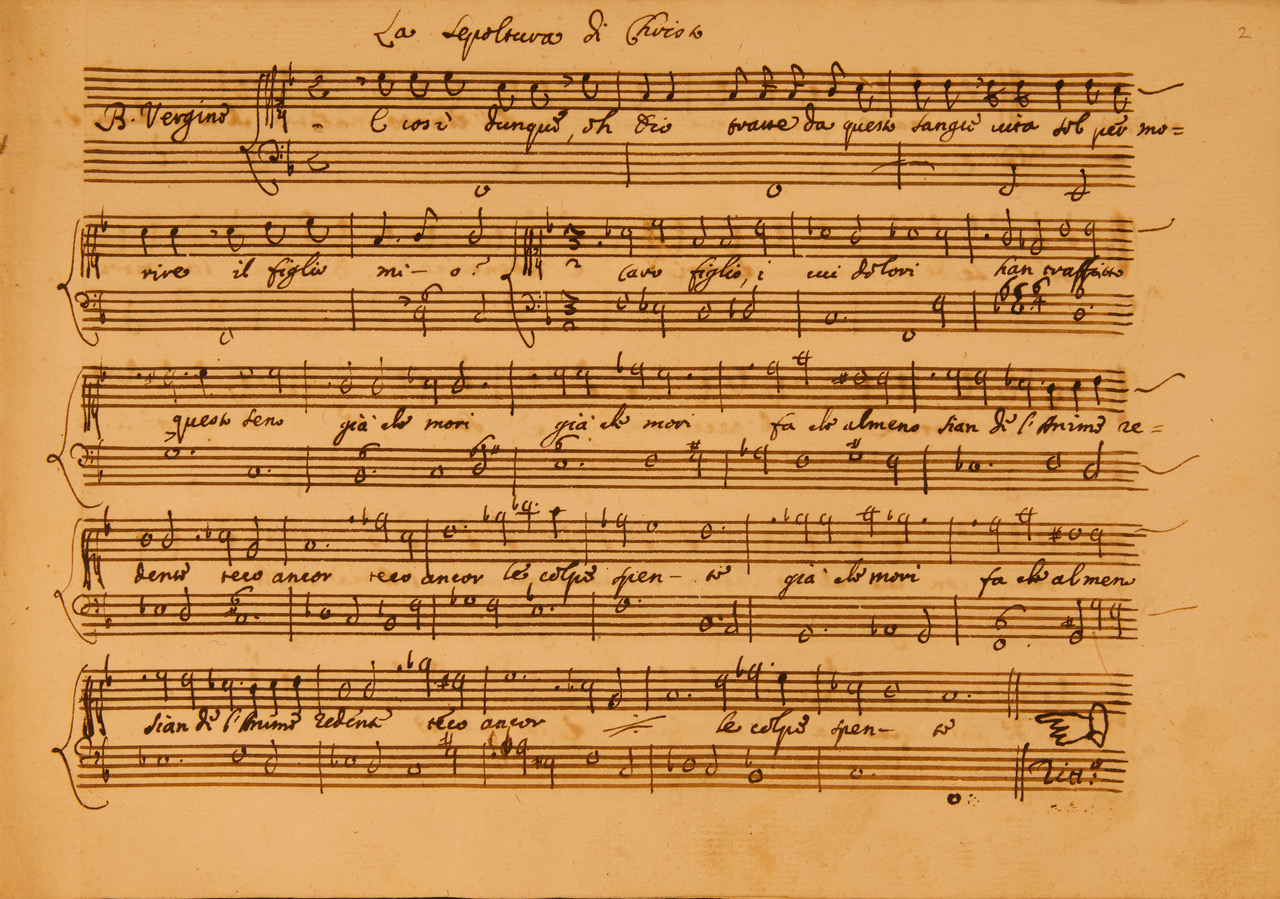 La Sepoltura di Christo
2
B. Vergine
E così dunque, oh Dio trarre da questo sangue vita sol per mo=
rire il figlio mi- o?
Caro figlio, i cui dolori han traffitto
questo seno già che mori già che mori fa che almeno sian de l'Anime re=
dente teco ancor teco ancor le colpe spen- te già che mori fa che almeno
sian de l'Anime redente teco ancor le colpe spen- te
Rit: